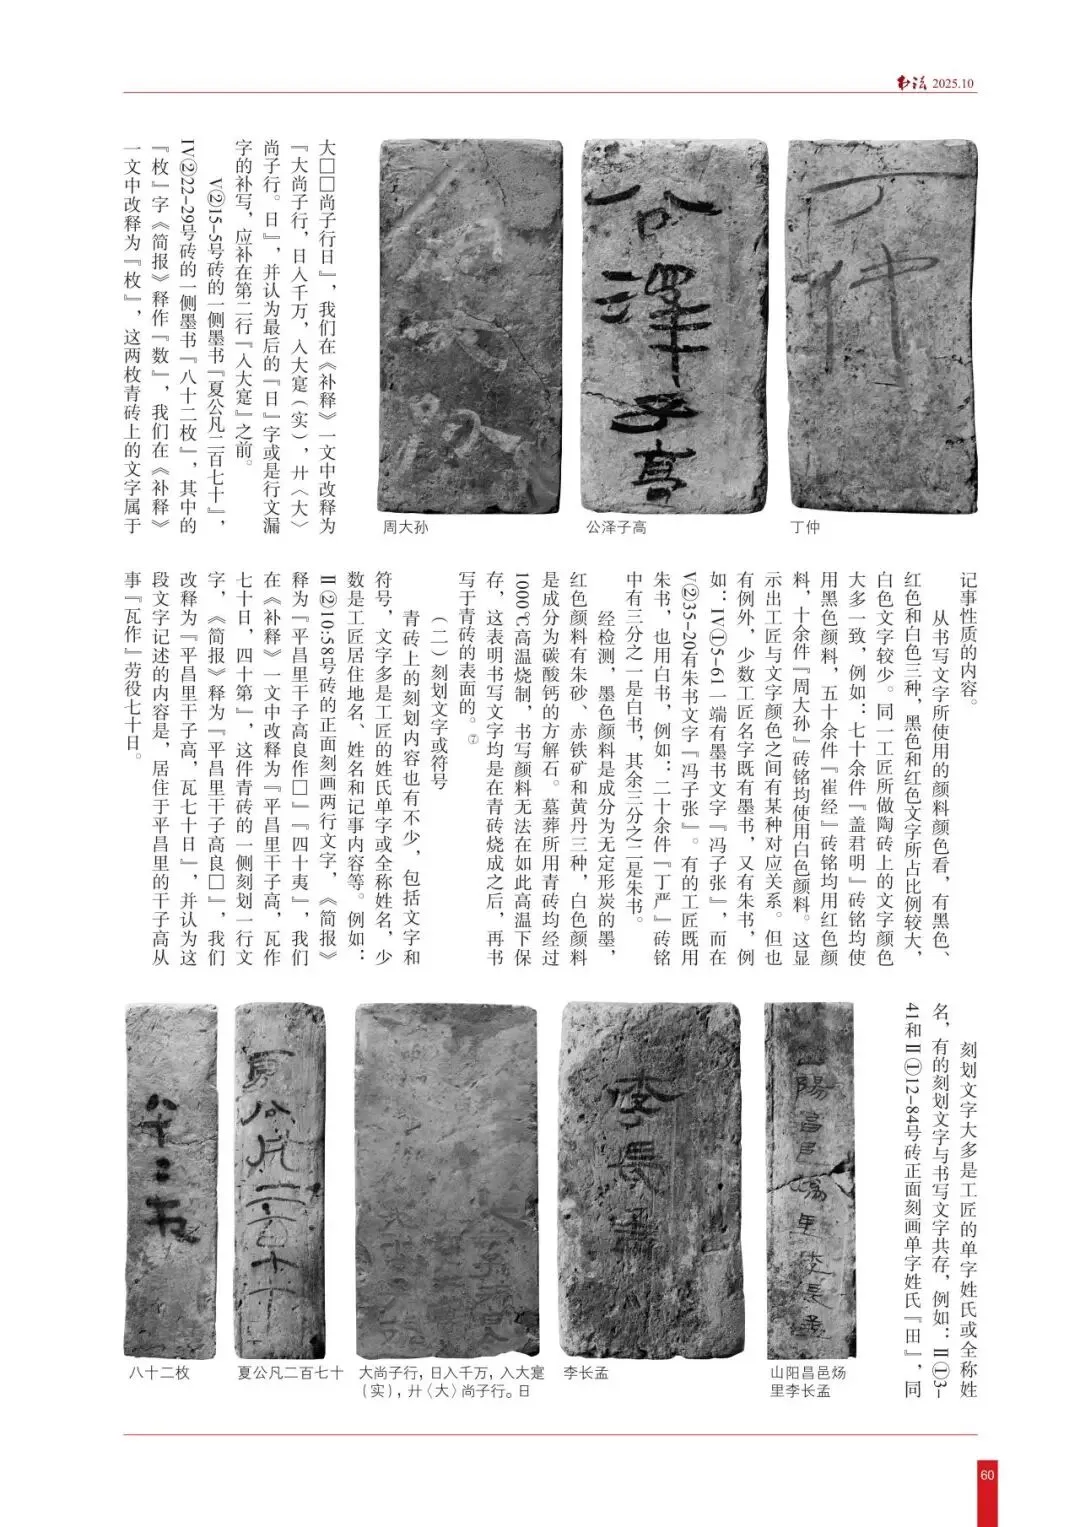 书法 2025.10
大□□尚子行日』，我们在《补释》一文中改释为
『大尚子行，日入千万，入大寔（实），廾〈大〉
尚子行。日』，并认为最后的『日』字或是行文漏
字的补写，应补在第二行『入大寔』之前。
V②15-5号砖的一侧墨书『夏公凡二百七十』，
IV②22-29号砖的一侧墨书『八十二枚』，其中的
『枚』字《简报》释作『数』，我们在《补释》
一文中改释为『枚』，这两枚青砖上的文字属于
公泽子高
丁仲
周大孙
公泽子高
丁仲
记事性质的内容。
从书写文字所使用的颜料颜色看，有黑色、
红色和白色三种，黑色和红色文字所占比例较大，
白色文字较少。同一工匠所做陶砖上的文字颜色
大多一致，例如：七十余件『盖君明』砖铭均使
用黑色颜料，五十余件『崔经』砖铭均用红色颜
料，十余件『周大孙』砖铭均使用白色颜料。这显
示出工匠与文字颜色之间有某种对应关系。但也
有例外，少数工匠名字既有墨书，又有朱书，例
如：IV①5-61一端有墨书文字『冯子张』，而在
V②35-20有朱书文字『冯子张』。有的工匠既用
朱书，也用白书，例如：二十余件『丁严』砖铭
中有三分之一是白书，其余三分之二是朱书。
经检测，墨色颜料是成分为无定形炭的墨，
红色颜料有朱砂、赤铁矿和黄丹三种，白色颜料
是成分为碳酸钙的方解石。墓葬所用青砖均经过
1000℃高温烧制，书写颜料无法在如此高温下保
存，这表明书写文字均是在青砖烧成之后，再书
写于青砖的表面的。⑦
（二）刻划文字或符号
青砖上的刻划内容也有不少，包括文字和
符号，文字多是工匠的姓氏单字或全称姓名，少
数是工匠居住地名、姓名和记事内容等。例如：
II②10:58号砖的正面刻画两行文字，《简报》
释为『平昌里干子高良作□』『四十夷』，我们
在《补释》一文中改释为『平昌里干子高，瓦作
七十日，四十第』，这件青砖的一侧刻划一行文
字，《简报》释为『平昌里干子高良□』，我们
改释为『平昌里干子高，瓦七十日』，并认为这
段文字记述的内容是，居住于平昌里的干子高从
事『瓦作』劳役七十日。
刻划文字大多是工匠的单字姓氏或全称姓
名，有的刻划文字与书写文字共存，例如：II①3-
41和II①12-84号砖正面刻画单字姓氏『田』，同
八十二枚
夏公凡二百七十
李長孟
山陽昌邑煬里李長孟
八十二枚
夏公凡二百七十
大尚子行，日入千万，入大寔
（实），廾〈大〉尚子行。日
李长孟
山阳昌邑炀
里李长孟
60